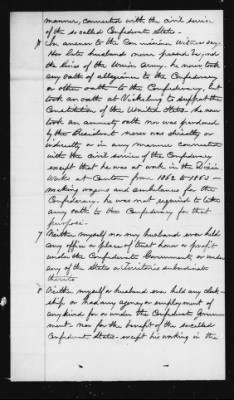 manner, connected with the civil service
of the so called Confederate States –
In answer to the Commissioner Witness says
Her late husband never passed beyond
the lines of the Union Army. he never took
any oath of allegiance to the Confederacy
or other oath to the Confederacy, but
took an oath at Vicksburg to support the
Constitution of the United States, he never
took an amnesty oath nor was pardoned
by the President never was directly or
indirectly or in any manner connected
with the civil service of the Confederacy
except that he was at work in the
Works at Canton from 1862 to 1863 –
making wagons and ambulances for the
Confederacy. he was not required to take
any oath to the Confederacy for that
purpose –
7 Neither myself nor my husband ever held
any office or place of trust honor or profit
under the Confederate Government, or under
any of the States or Territories subordinate
thereto
8 Neither myself or husband ever held any clerk-
ship or had any agency or employment of
any kind for or under the Confederate Govern
ment nor for the benefit of the so called
Confederate States – except his working in the